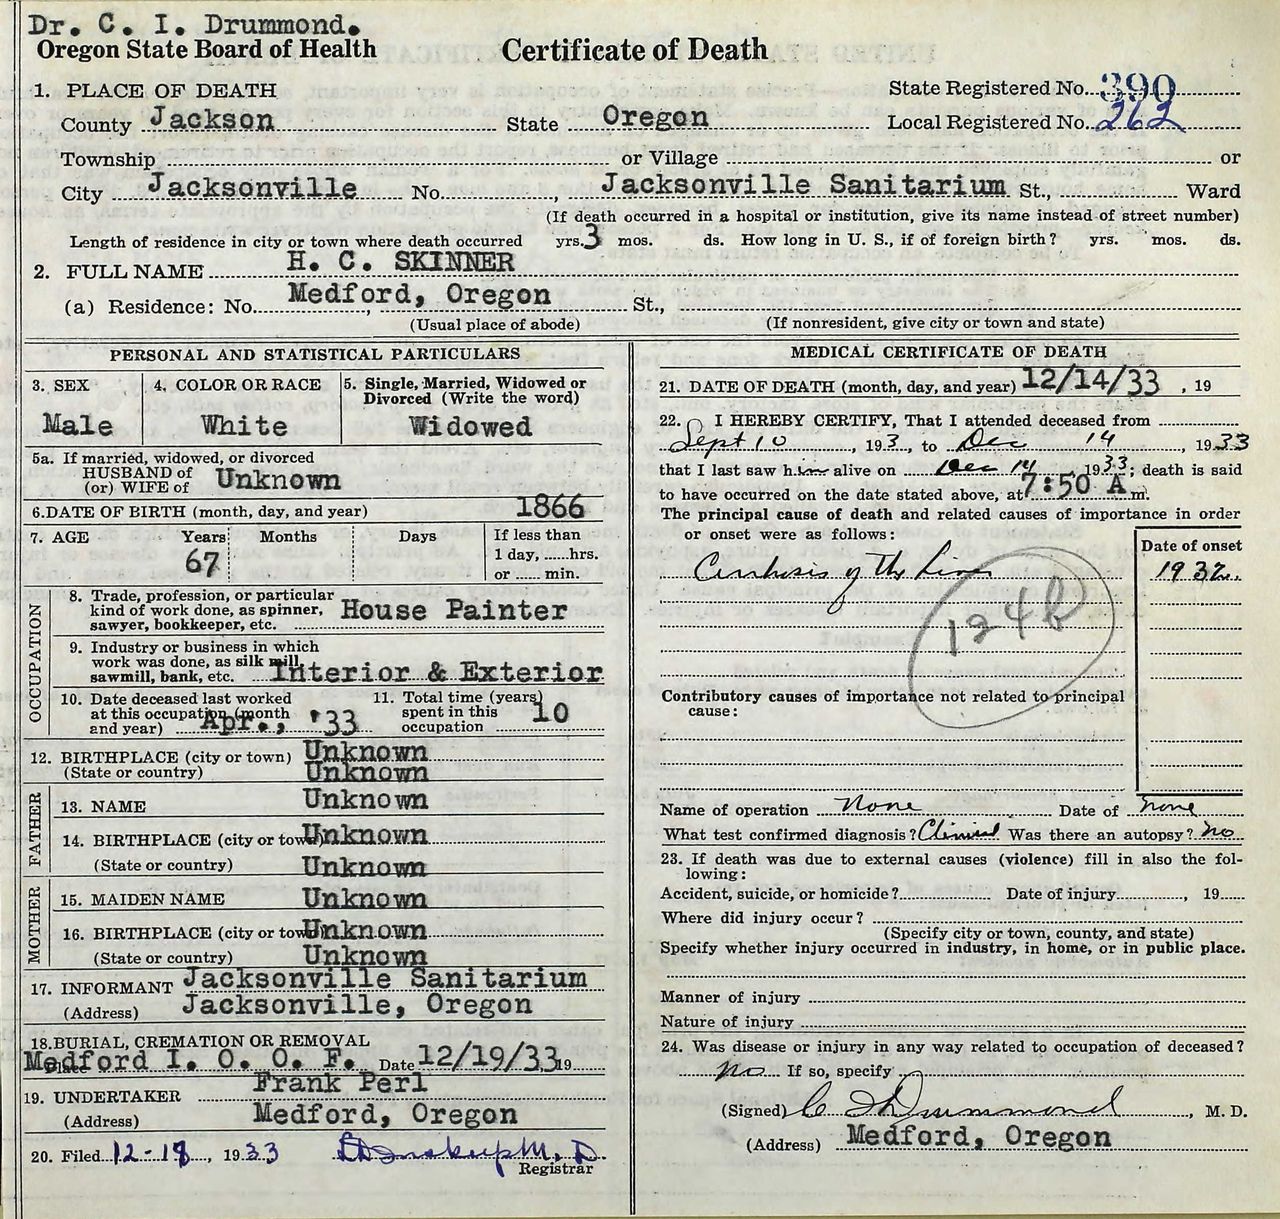 Dr. C. I. Drummond.
Oregon State Board of Health
Certificate of Death
1. PLACE OF DEATH
State Registered No. 390
County Jackson State Oregon
Local Registered No. 262
Township or Village or
City Jacksonville No. , Jacksonville Sanitarium St., Ward
(If death occurred in a hospital or institution, give its name instead of street number)
Length of residence in city or town where death occurred yrs. 3 mos. ds. How long in U. S., if of foreign birth? yrs. mos. ds.
2. FULL NAME H. C. SKINNER
(a) Residence: No. , Medford, Oregon St.,
(Usual place of abode) (If nonresident, give city or town and state)
PERSONAL AND STATISTICAL PARTICULARS
3. SEX
Male
4. COLOR OR RACE
White
5. Single, Married, Widowed or
Divorced (Write the word)
Widowed
5a. If married, widowed, or divorced
HUSBAND of
(or) WIFE of Unknown
6. DATE OF BIRTH (month, day, and year) 1866
7. AGE Years Months Days If less than
1 day, hrs.
67 or min.
OCCUPATION
8. Trade, profession, or particular
kind of work done, as spinner,
sawyer, bookkeeper, etc. House Painter
9. Industry or business in which
work was done, as silk mill,
sawmill, bank, etc. Interior & Exterior
10. Date deceased last worked
at this occupation (month
and year) Apr., '33
11. Total time (years)
spent in this
occupation 10
12. BIRTHPLACE (city or town) Unknown
(State or country) Unknown
FATHER
13. NAME Unknown
14. BIRTHPLACE (city or town) Unknown
(State or country) Unknown
MOTHER
15. MAIDEN NAME Unknown
16. BIRTHPLACE (city or town) Unknown
(State or country) Unknown
17. INFORMANT Jacksonville Sanitarium
(Address) Jacksonville, Oregon
18. BURIAL, CREMATION OR REMOVAL
Place Medford I. O. O. F. Date 12/19/33 19
19. UNDERTAKER Frank Perl
(Address) Medford, Oregon
20. Filed 12-18, 1933 M. D.
Registrar
MEDICAL CERTIFICATE OF DEATH
21. DATE OF DEATH (month, day, and year) 12/14/33 , 19
22. I HEREBY CERTIFY, That I attended deceased from
Sept 10, 193 , to Dec 14, 1933
that I last saw him alive on Dec 14, 1933; death is said
to have occurred on the date stated above, at 7:50 A m.
The principal cause of death and related causes of importance in order
or onset were as follows:
Date of onset
Cirrhosis of the Liver 1932
124b
Contributory causes of importance not related to principal
cause:
Name of operation None Date of none
What test confirmed diagnosis? Clinical Was there an autopsy? no
23. If death was due to external causes (violence) fill in also the fol-
lowing:
Accident, suicide, or homicide? Date of injury , 19
Where did injury occur?
(Specify city or town, county, and state)
Specify whether injury occurred in industry, in home, or in public place.
Manner of injury
Nature of injury
24. Was disease or injury in any way related to occupation of deceased?
no If so, specify
(Signed) C I Drummond, M. D.
(Address) Medford, Oregon